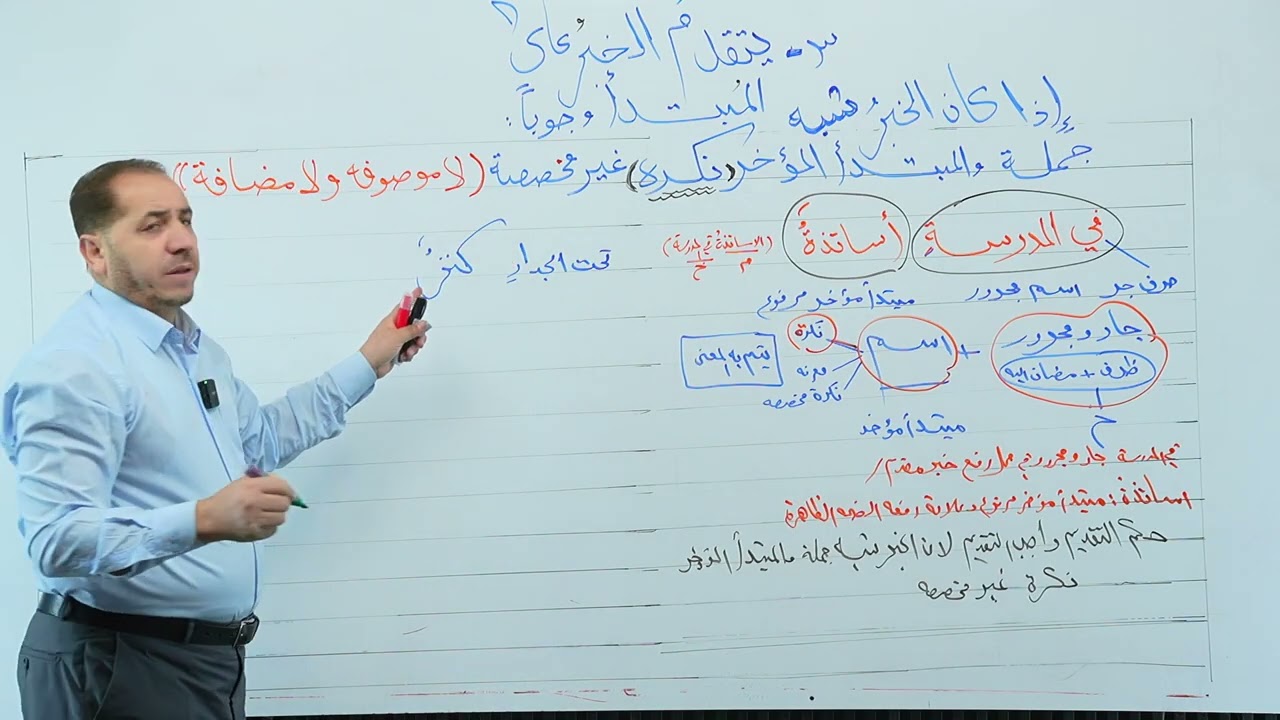 ٣- يتقدم الخبرُ على
المُبتدأ وجوباً:
إذا كان الخبرُ شبه
جملة والمبتدأ المؤخر (نكرة) غير مخصصة (لا موصوفه ولا مضافة)
في المدرسةِ أساتذةُ (الاساتذة في المدرسة)
م خ
تحت الجدارِ كنزُ
حرف جر اسم مجرور مبتدأ مؤخر مرفوع
جار ومجرور + اسم نكرة
ظرف + مضاف اليه
معرفه
نكرة مخصصه
يتم به المعنى
خ مبتدأ مؤخر
في المدرسة جار ومجرور في محل رفع خبر مقدم /
اساتذة: مبتدأ مؤخر مرفوع وعلامة رفعه الضمه الظاهرة
حكم التقديم واجب التقديم لان الخبر شبه جملة والمبتدأ المؤخر
نكرة غير مخصصه